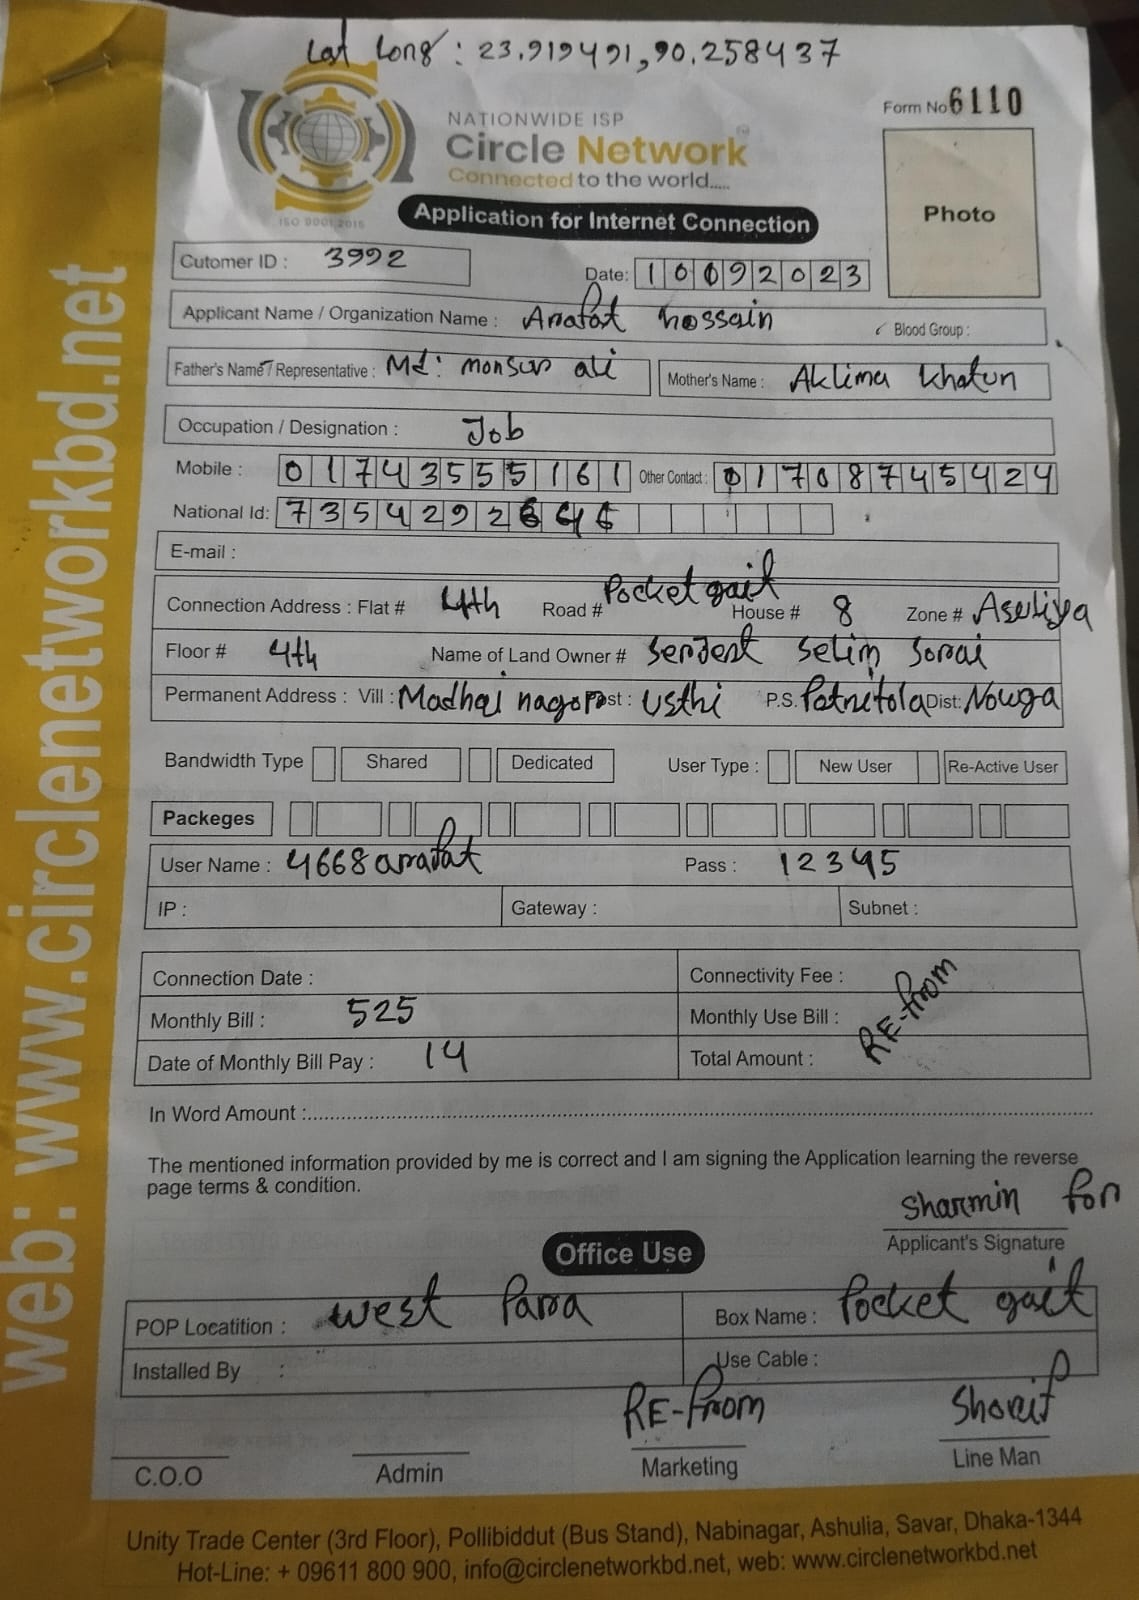 Lat Long : 23.919491,90.258437
Form No 6110
NATIONWIDE ISP
Circle Network
Connected to the world.....
ISO 9001:2015
Photo
Application for Internet Connection
Cutomer ID : 3992
Date: 10092023
Applicant Name / Organization Name : Arafat hossain Blood Group :
Father's Name / Representative : Md: monsur ali Mother's Name : Aklima Khatun
Occupation / Designation : Job
Mobile : 01743555161 Other Contact : 01708745424
National Id: 7354292646
E-mail :
Connection Address : Flat # 4th Road # Pocket gait House # 8 Zone # Aseliya
Floor # 4th Name of Land Owner # Serjest Selim Sorai
Permanent Address : Vill : Madhai nagor Post : Usthi P.S. Patnitola Dist: Nouga
Bandwidth Type Shared Dedicated User Type : New User Re-Active User
Packeges
User Name : 4668arafat Pass : 12345
IP : Gateway : Subnet :
Connection Date : Connectivity Fee :
Monthly Bill : 525 Monthly Use Bill : RE-from
Date of Monthly Bill Pay : 14 Total Amount :
In Word Amount :
The mentioned information provided by me is correct and I am signing the Application learning the reverse
page terms & condition.
Sharmin for
Applicant's Signature
Office Use
POP Locatition : west Para Box Name : Pocket gait
Installed By : Use Cable :
RE-from Shorif
C.O.O Admin Marketing Line Man
Unity Trade Center (3rd Floor), Pollibiddut (Bus Stand), Nabinagar, Ashulia, Savar, Dhaka-1344
Hot-Line: + 09611 800 900, info@circlenetworkbd.net, web: www.circlenetworkbd.net
web: www.circlenetworkbd.net